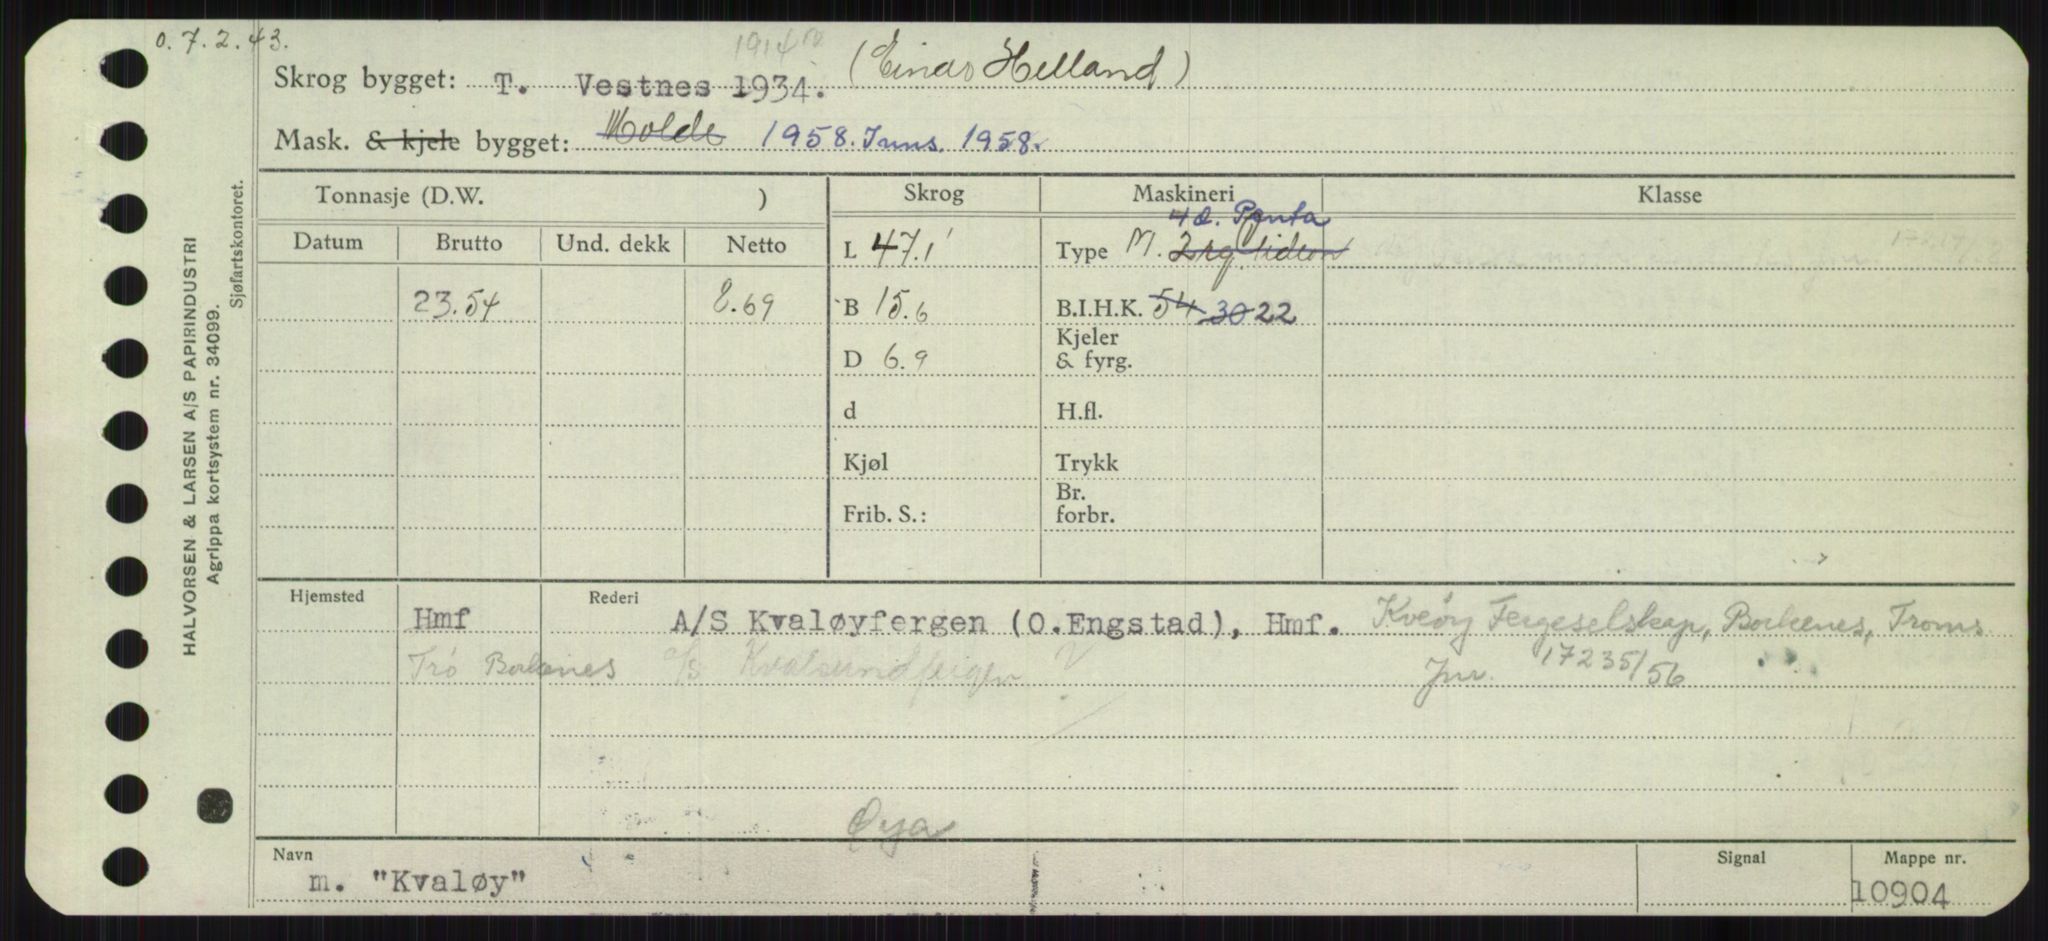 0.7.2.43.
1914
Skrog bygget: T. Vestnes 1934. (Einar Helland)
Mask. & kjele bygget: Molde 1958. Inns. 1958.
HALVORSEN & LARSEN A/S PAPIRINDUSTRI
Agrippa kortsystem nr. 34099.
Sjøfartskontoret.
Tonnasje (D.W. ) Skrog Maskineri Klasse
Datum Brutto Und. dekk Netto
L 47.1' Type M. 4 d. Penta
23.54 8.69 B 15.6 B.I.H.K. 54 30 22
Kjeler
D 6.9 & fyrg.
d H.fl.
Kjøl Trykk
Br.
Frib. S.: forbr.
Hjemsted Rederi
Hmf A/S Kvaløyfergen (O.Engstad), Hmf. Kveøy Fergeselskap, Borkenes, Troms
Trø Borkenes A/S Kvalsundfergen ? Jnr. 17235/56
Øya
Navn Signal Mappe nr.
m. "Kvaløy" 10904